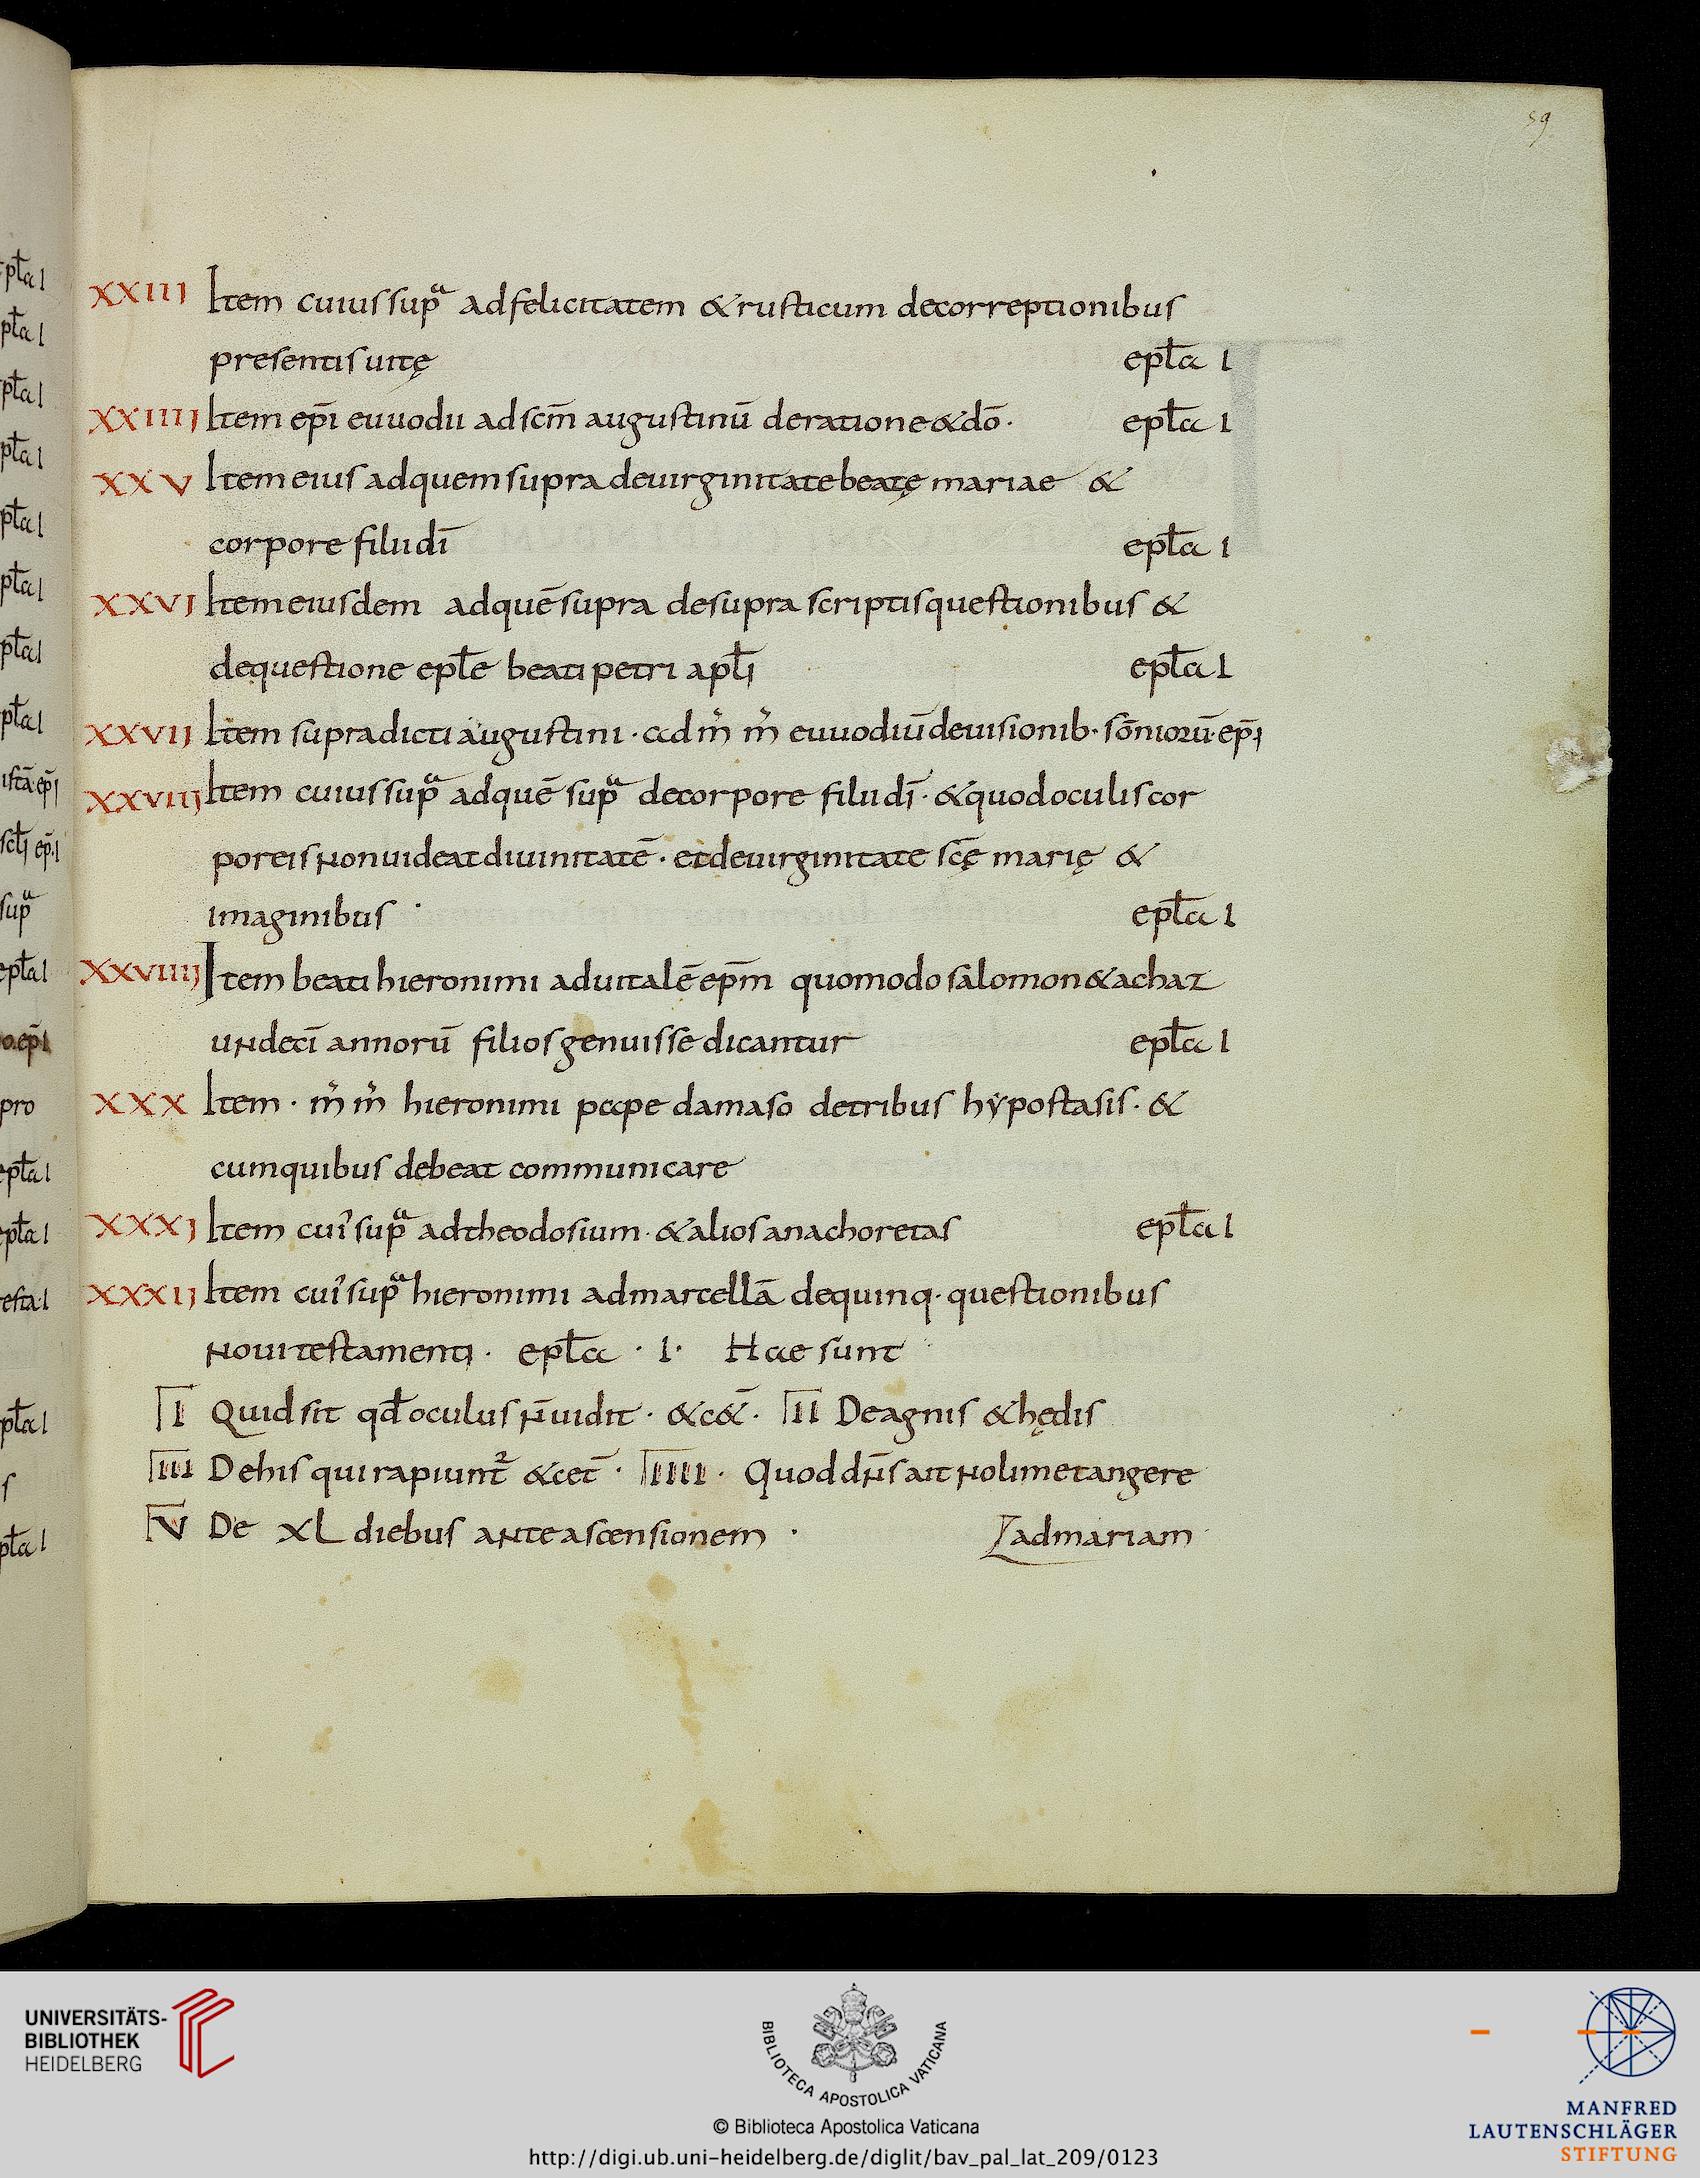 59
XXIII Item cuius supᵃ ad felicitatem & rusticum decorreptionibus
presentis uitę epłа l
XXIIII Item ep̄i euuodii ad scm̄ augustinū de ratione & dō· epła l
XXV Item eius ad quem supra de uirginitate beatę mariae &
corpore filii dī epła l
XXVI Item eiusdem ad quē supra de supra scriptis questionibus &
de questione epłe beati petri apłi epła l
XXVII Item supradicti augustini· ad m̄ m̄ euuodiū de uisionib· som̄niorū· ep̄ l
XXVIII Item cuius supᵃ ad quē supᵃ de corpore filii dī· & quod oculis cor
poreis non uideat diuinitatē· et de uirginitate scę̄ marię &
imaginibus epła l
XXVIIII Item beati hieronimi ad uitalē ep̄m quomodo salomon & achaz
undecī annorū filios genuisse dicantur epła l
XXX Item· m̄ m̄ hieronimi pape damaso de tribus hẏpostasis· &
cum quibus debeat communicare
XXXI Item cuiꝰ supᵃ ad theodosium· & alios anachoretas epła l
XXXII Item cuiꝰ supᵃ hieronimi ad marcellā de quinq· questionibus
noui testamenti· epła · l· Hae sunt
I Quid sit qđ oculus n̄ uidit· & c&̄· II De agnis & hędis
III De his qui rapiunt̄ & cet̄· IIII· Quod dn̄s ait noli me tangere
V De XL diebus ante ascensionem · ad mariam
UNIVERSITÄTS-
BIBLIOTHEK
HEIDELBERG
BIBLIOTECA APOSTOLICA VATICANA
© Biblioteca Apostolica Vaticana
http://digi.ub.uni-heidelberg.de/diglit/bav_pal_lat_209/0123
MANFRED
LAUTENSCHLÄGER
STIFTUNG